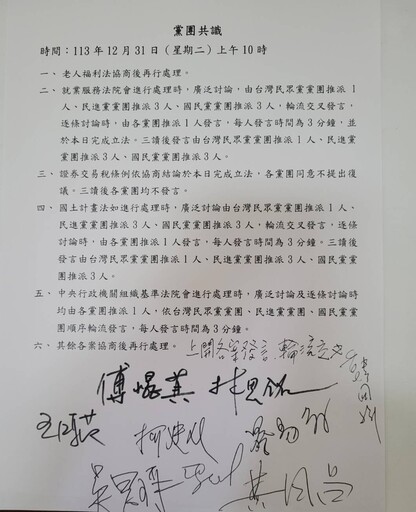 黨團共識
時間：113 年 12 月 31 日（星期二）上午 10 時
一、老人福利法協商後再行處理。
二、就業服務法院會進行處理時，廣泛討論，由台灣民眾黨黨團推派 1
人、民進黨黨團推派 3 人，國民黨黨團推派 3 人，輪流交叉發言，
逐條討論時，由各黨團推派 1 人發言，每人發言時間為 3 分鐘，並
於本日完成立法。三讀後發言由台灣民眾黨黨團推派 1 人、民進黨
黨團推派 3 人、國民黨黨團推派 3 人。
三、證券交易稅條例依協商結論於本日完成立法，各黨團同意不提出復
議。三讀後各黨團均不發言。
四、國土計畫法如進行處理時，廣泛討論由台灣民眾黨黨團推派 1 人、
民進黨黨團推派 3 人、國民黨黨團推派 3 人，輪流交叉發言，逐條
討論時，由各黨團推派 1 人發言，每人發言時間為 3 分鐘。三讀後
發言由台灣民眾黨黨團推派 1 人、民進黨黨團推派 3 人、國民黨黨
團推派 3 人。
五、中央行政機關組織基準法院會進行處理時，廣泛討論及逐條討論時
均由各黨團推派 1 人，依台灣民眾黨黨團、民進黨黨團、國民黨黨
團順序輪流發言，每人發言時間為 3 分鐘。
六、其餘各案協商後再行處理。
上開各案發言，輪流交叉
傅崐萁 林思銘
韓國瑜